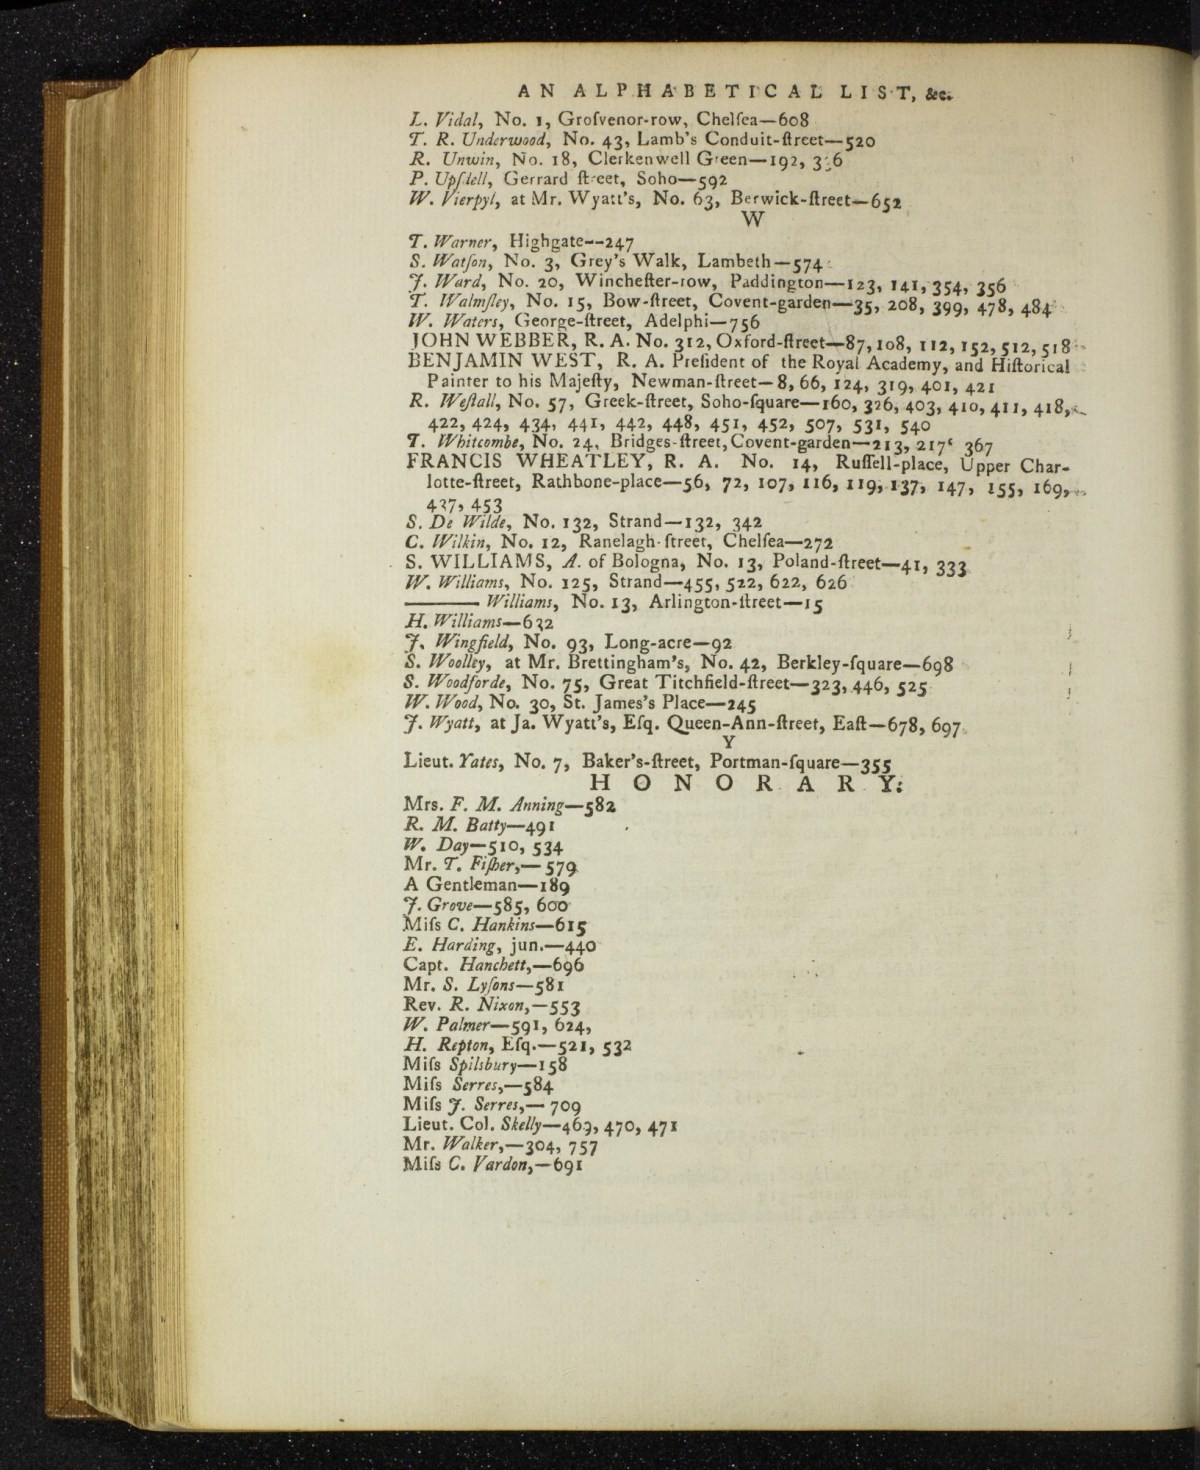 AN ALPHABETICAL LIST, &c.
L. Vidal, No. 1, Groſvenor-row, Chelſea—608
T. R. Underwood, No. 43, Lamb's Conduit-ſtreet—520
R. Unwin, No. 18, Clerkenwell Green—192,
P. Upſdell, Gerrard ſtreet, Soho—592
W. Vierpyl, at Mr. Wyatt's, No. 63, Berwick-ſtreet—652
W
T. Warner, Highgate--247
S. Watſon, No. 3, Grey's Walk, Lambeth—574
J. Ward, No. 20, Wincheſter-row, Paddington—123, 141, 354, 356
T. Walmſley, No. 15, Bow-ſtreet, Covent-garden—35, 208, 399, 478, 484
W. Waters, George-ſtreet, Adelphi—756
JOHN WEBBER, R. A. No. 312, Oxford-ſtreet—87, 108, 112, 152, 512, 518
BENJAMIN WEST, R. A. Preſident of the Royal Academy, and Hiſtorical
Painter to his Majeſty, Newman-ſtreet—8, 66, 124, 319, 401, 421
R. Weſtall, No. 57, Greek-ſtreet, Soho-ſquare—160, 326, 403, 410, 411, 418,
422, 424, 434, 441, 442, 448, 451, 452, 507, 531, 540
T. Whitcombe, No. 24, Bridges-ſtreet, Covent-garden—213, 217‘ 367
FRANCIS WHEATLEY, R. A. No. 14, Ruſſell-place, Upper Char-
lotte-ſtreet, Rathbone-place—56, 72, 107, 116, 119, 137, 147, 155, 169,
437, 453
S. De Wilde, No. 132, Strand—132, 342
C. Wilkin, No. 12, Ranelagh-ſtreet, Chelſea—272
S. WILLIAMS, A. of Bologna, No. 13, Poland-ſtreet—41, 333
W. Williams, No. 125, Strand—455, 522, 622, 626
——— Williams, No. 13, Arlington-ſtreet—15
H. Williams—632
J. Wingfield, No. 93, Long-acre—92
S. Woolley, at Mr. Brettingham's, No. 42, Berkley-ſquare—698
S. Woodforde, No. 75, Great Titchfield-ſtreet—323, 446, 525
W. Wood, No. 30, St. James's Place—245
J. Wyatt, at Ja. Wyatt's, Eſq. Queen-Ann-ſtreet, Eaſt—678, 697
Y
Lieut. Yates, No. 7, Baker's-ſtreet, Portman-ſquare—355
HONORARY.
Mrs. F. M. Anning—582
R. M. Batty—491
W. Day—510, 534
Mr. T. Fiſher,—579
A Gentleman—189
J. Grove—585, 600
Miſs C. Hankins—615
E. Harding, jun.—440
Capt. Hanchett,—696
Mr. S. Lyſons—581
Rev. R. Nixon,—553
W. Palmer—591, 624,
H. Repton, Eſq.—521, 532
Miſs Spilsbury—158
Miſs Serres,—584
Miſs J. Serres,— 709
Lieut. Col. Skelly—469, 470, 471
Mr. Walker,—304, 757
Miſs C. Vardon,—691